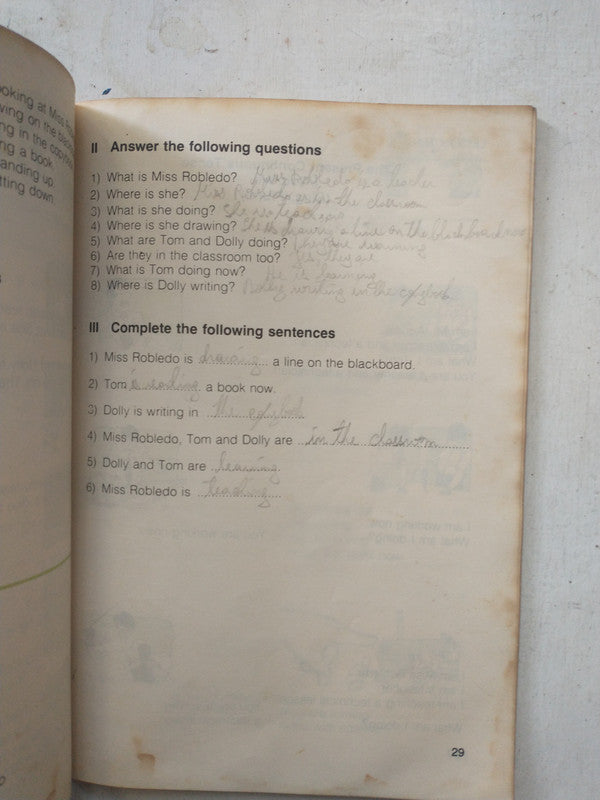 ooking at Miss
ving on the black
ng in the copybo
ng a book.
anding up.
tting down
II Answer the following questions
1) What is Miss Robledo? Miss Robledo is a teacher
2) Where is she? Miss Robledo is in the classroom
3) What is she doing? She is teaching
4) Where is she drawing? She is drawing a line on the blackboard now
5) What are Tom and Dolly doing? They are learning
6) Are they in the classroom too? Yes they are
7) What is Tom doing now? He is learning
8) Where is Dolly writing? Dolly writing in the copybook
III Complete the following sentences
1) Miss Robledo is drawing a line on the blackboard.
2) Tom is reading a book now.
3) Dolly is writing in the copybook
4) Miss Robledo, Tom and Dolly are in the classroom
5) Dolly and Tom are learning
6) Miss Robledo is teaching
29